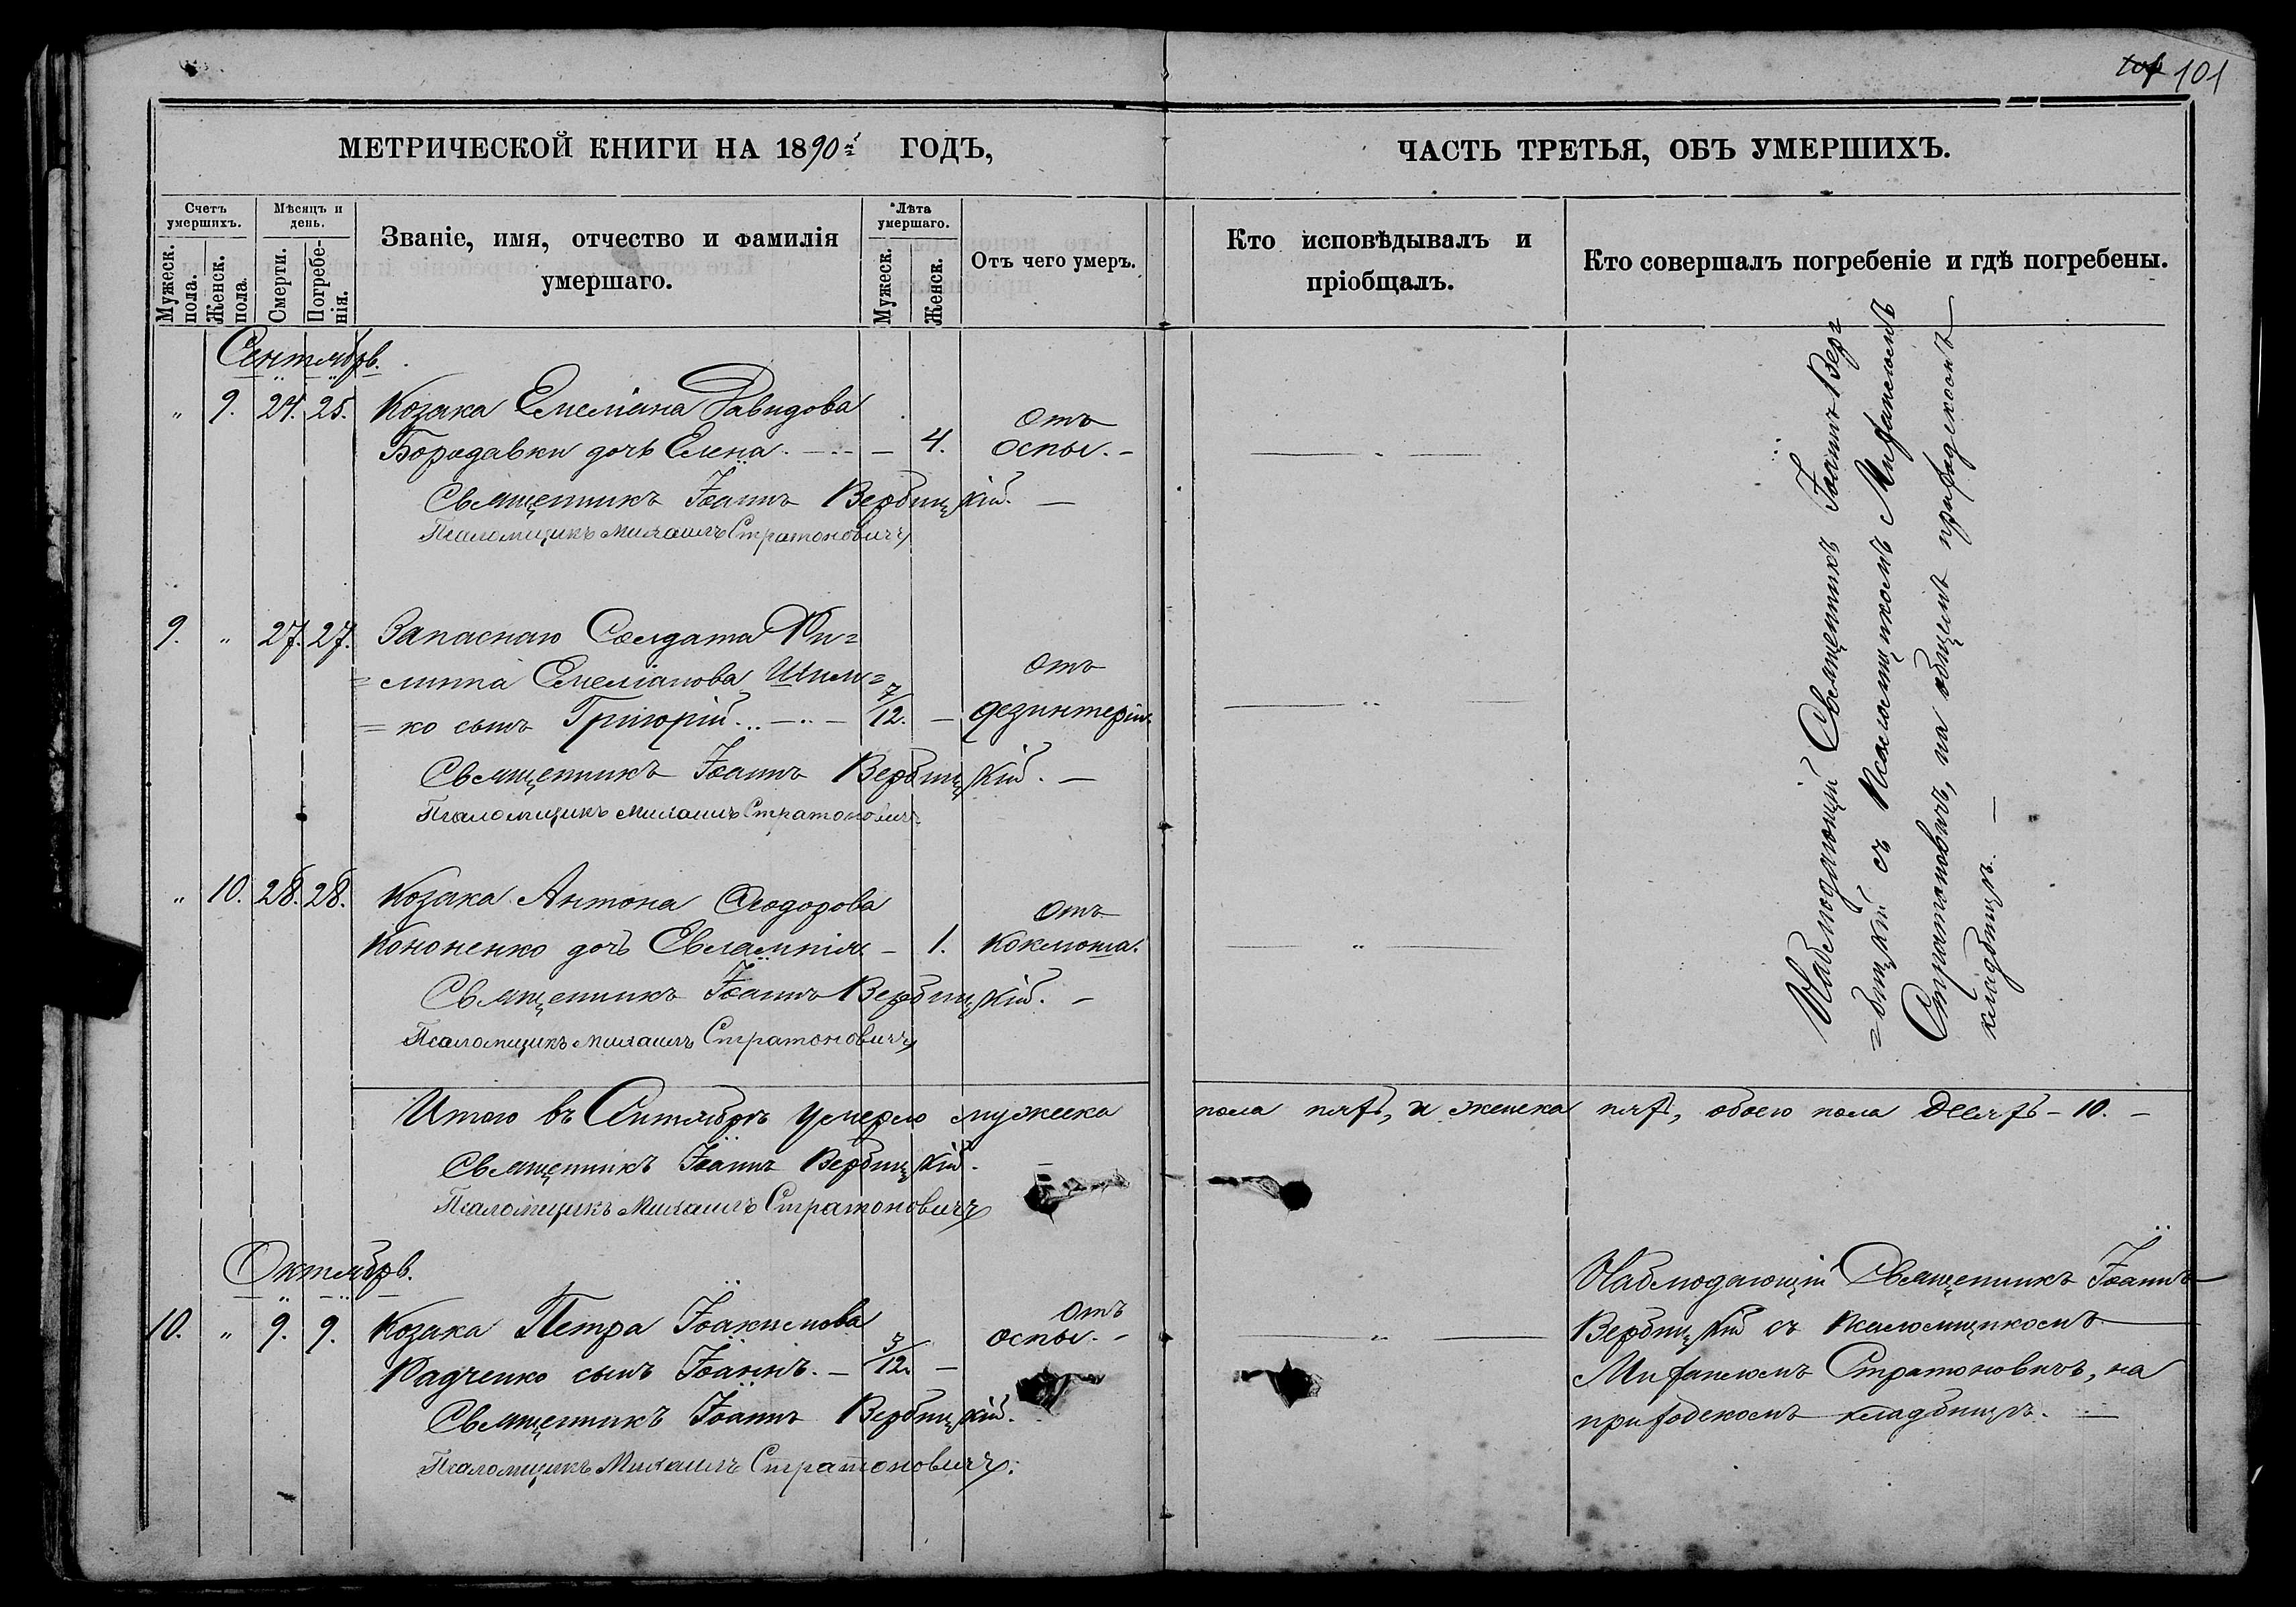 101
МЕТРИЧЕСКОЙ КНИГИ НА 1890й ГОДЪ,
ЧАСТЬ ТРЕТЬЯ, ОБЪ УМЕРШИХЪ.
Счетъ умершихъ.
Мужеск. пола.
Женск. пола.
Мѣсяцъ и день.
Смерти.
Погребе-нія.
Званіе, имя, отчество и фамилія
умершаго.
Лѣта умершаго.
Мужеск.
Женск.
Отъ чего умеръ.
Кто исповѣдывалъ и
пріобщалъ.
Кто совершалъ погребеніе и гдѣ погребены.
Сентябрь.
" 9. 24. 25. Козака Емеліана Давидова
Бородавки дочь Елена. — 4. Отъ оспы. —
Священникъ Іоаннъ Вербицкій. —
Псаломщикъ Михаилъ Стратоновичъ
9. " 27. 27. Запаснаго Солдата Фи=
=липпа Емеліанова
=ко сынъ Григорій. — 7/12. — Отъ дезинтеріи.
Священникъ Іоаннъ Вербицкій. —
Псаломщикъ Михаилъ Стратоновичъ
" 10. 28. 28. Козака Антона Ѳеодорова
Кононенко дочь Евлампія. — 1. Отъ коклюша.
Священникъ Іоаннъ Вербицкій. —
Псаломщикъ Михаилъ Стратоновичъ
Наблюдающій Священникъ Іоаннъ Вер=
=бицкій съ Псаломщикомъ Михаиломъ
Стратоновичъ, на общемъ приходскомъ
кладбищѣ. —
Итого въ Сентябрѣ умерло мужеска пола пять, и женска пять, обоего пола десять — 10. —
Священникъ Іоаннъ Вербицкій.
Псаломщикъ Михаилъ Стратоновичъ
Октябрь.
10. " 9. 9. Козака Петра Іоакимова
Радченко сынъ Іоаннъ. — 3/12. — Отъ оспы. —
Священникъ Іоаннъ Вербицкій.
Псаломщикъ Михаилъ Стратоновичъ.
Наблюдающій Священникъ Іоаннъ
Вербицкій съ Псаломщикомъ
Михаиломъ Стратоновичъ, на
приходскомъ кладбищѣ. —